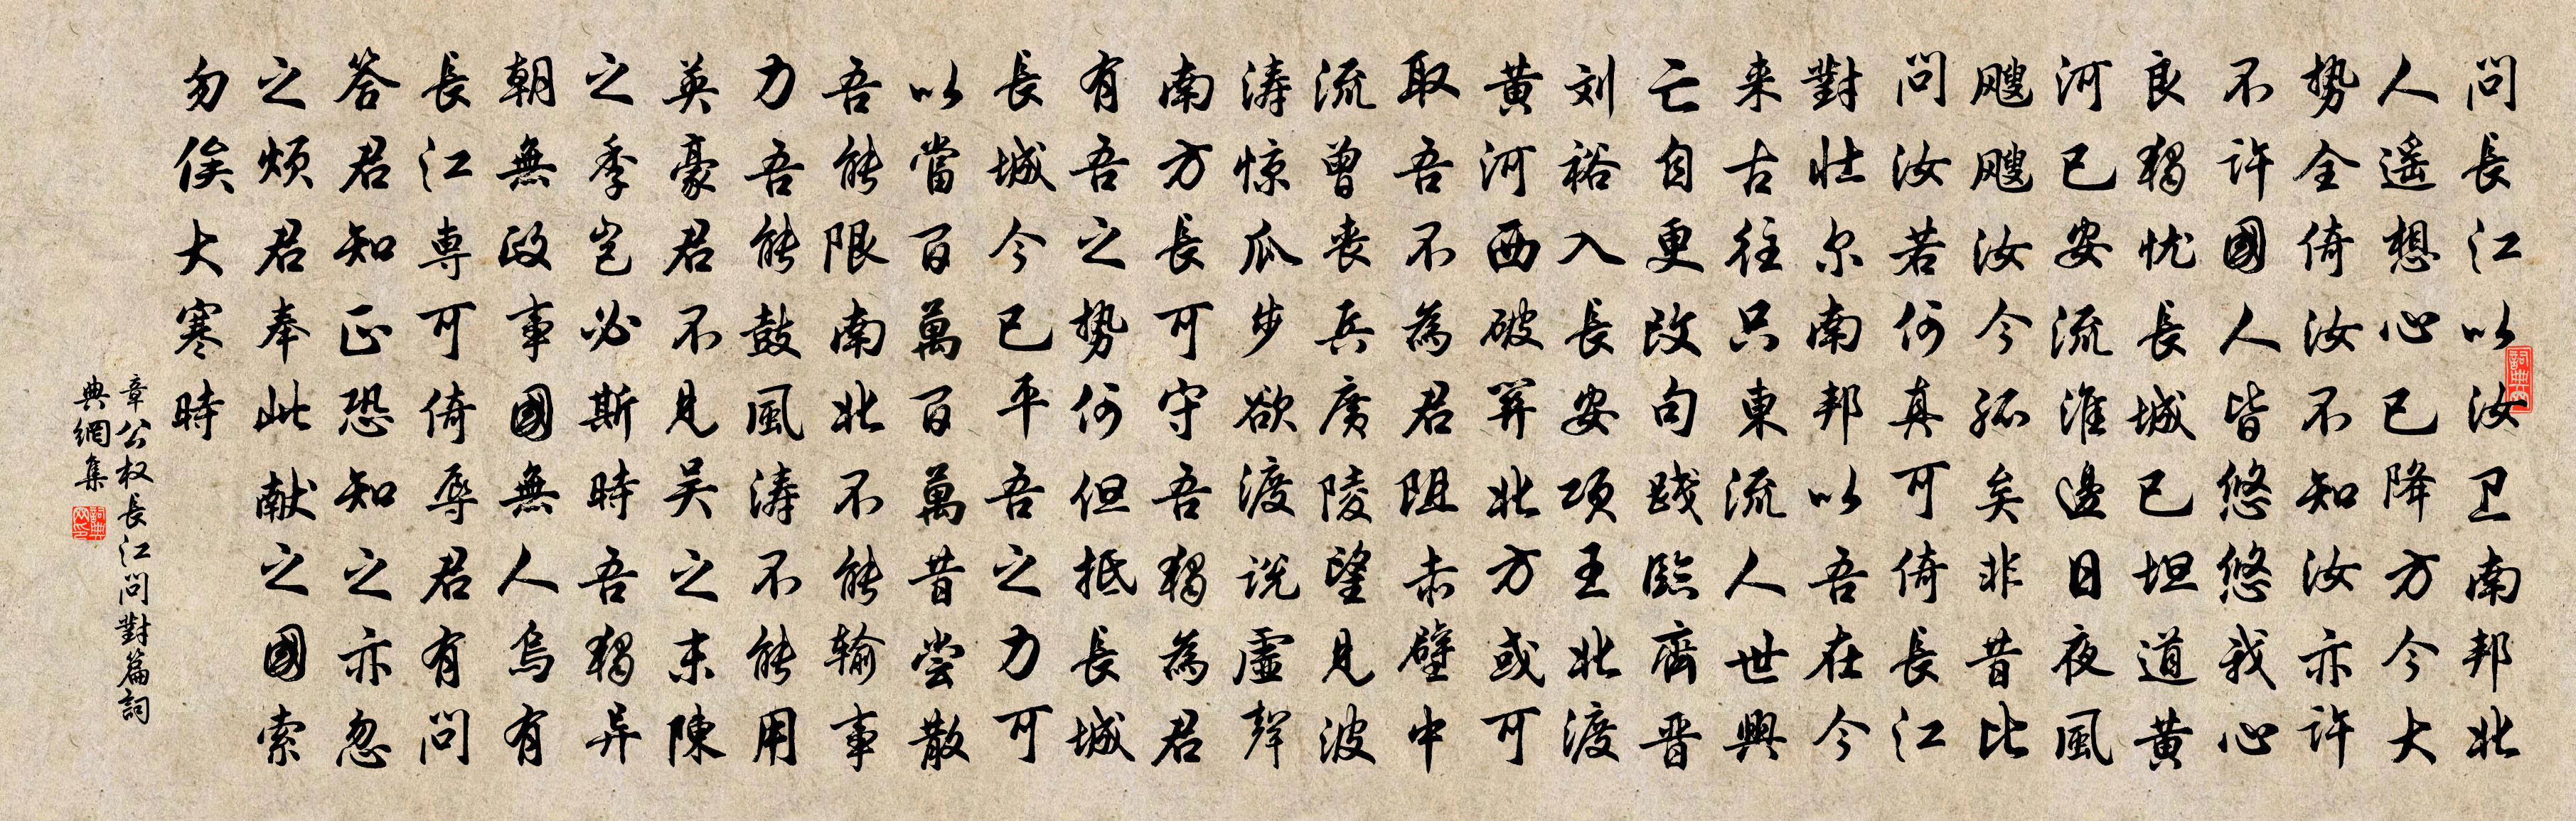 問長江以汝卫南邦北
人遥想心已降方今大
势全倚汝不知汝亦許
不許國人皆悠悠我心
良獨忧長城已坦道黄
河已安流淮邊日夜風
飕飕汝今孤矣非昔比
問汝若何真可倚長江
對壮尔南邦以吾在今
来古往只東流人世興
亡自更改句践臨齊晋
刘裕入長安項王北渡
黄河西破羿北方或可
取吾不為君阻赤壁中
流曾丧兵廣陵望見波
涛惊瓜步欲渡説虛聲
南方長可守吾獨為君
有吾之势何但抵長城
長城今已平吾之力可
以當百萬百萬昔尝散
吾能限南北不能输事
力吾能鼓風涛不能用
英豪君不見吴之末陳
之季岂必斯時吾獨异
朝無政事國無人烏有
長江専可倚辱君有問
答君知正恐知之亦忽
之煩君奉此献之國索
勿俟大寒時
章公权長江問對篇詞
典網集
詞典